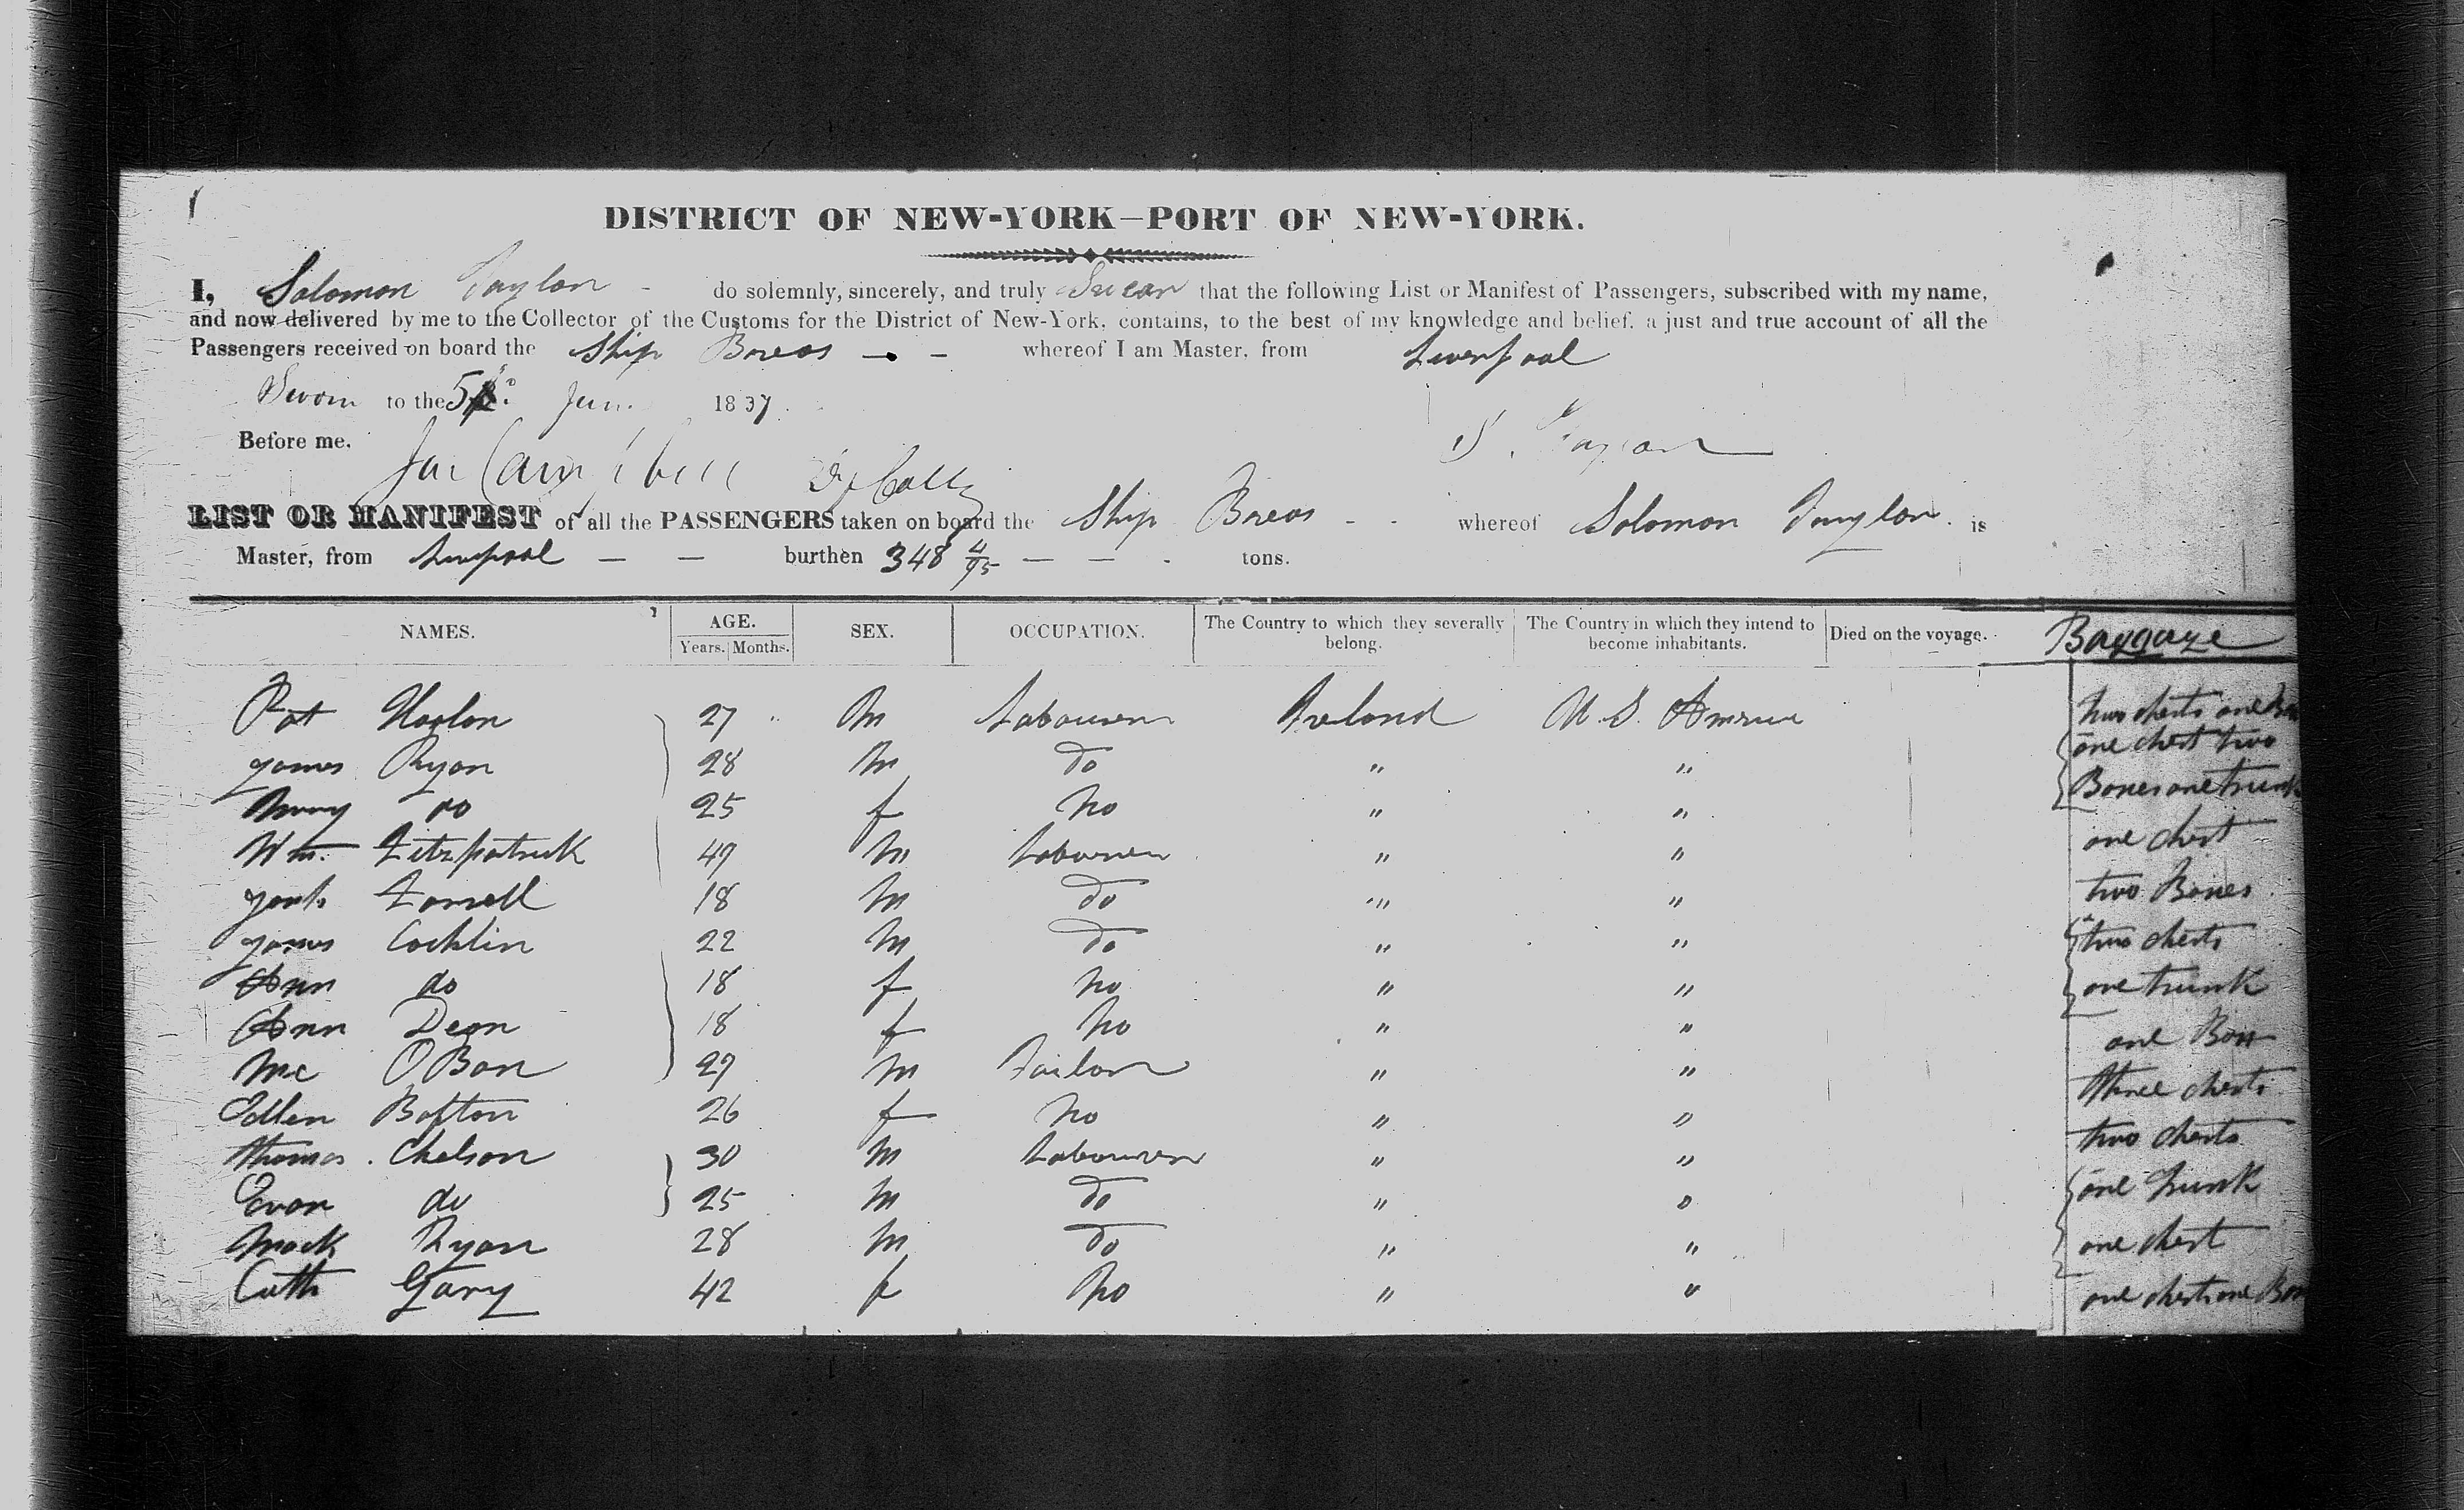 DISTRICT OF NEW-YORK—PORT OF NEW-YORK.
I, Solomon Taylor - do solemnly, sincerely, and truly Swear that the following List or Manifest of Passengers, subscribed with my name,
and now delivered by me to the Collector of the Customs for the District of New-York, contains, to the best of my knowledge and belief, a just and true account of all the
Passengers received on board the Ship Boreas - - whereof I am Master, from Liverpool
Sworn to the 5 June 1837.
Before me, Jas Campbell Dy Coll S. Taylor
LIST OR MANIFEST of all the PASSENGERS taken on board the Ship Boreas - - whereof Solomon Taylor. is
Master, from Liverpool — — burthen 348 4/95 — — - tons.
NAMES. AGE. Years. Months. SEX. OCCUPATION. The Country to which they severally belong. The Country in which they intend to become inhabitants. Died on the voyage. Baggage
Pat 27 M Labourer Ireland U. S. America two chests one
James Ryan 28 M Do " " one chest two
Mary do 25 f no " " Boxes one trunk
Wm. Fitzpatrick 49 M Labourer " " one chest
Farrell 18 M Do " " two Boxes
James Cocklin 22 M Do " " two chests
Ann do 18 f no " " one trunk
Ann Dean 18 f no " " one Box
M Tailor " " three chests
Ellen Bolton 26 f no " " two chests
Thomas Chelson 30 M Labourer " " one trunk
Evan do 25 M Do " "
Ryan 28 M Do " " one chest
Cath Gary 42 f no " " one chest one Box